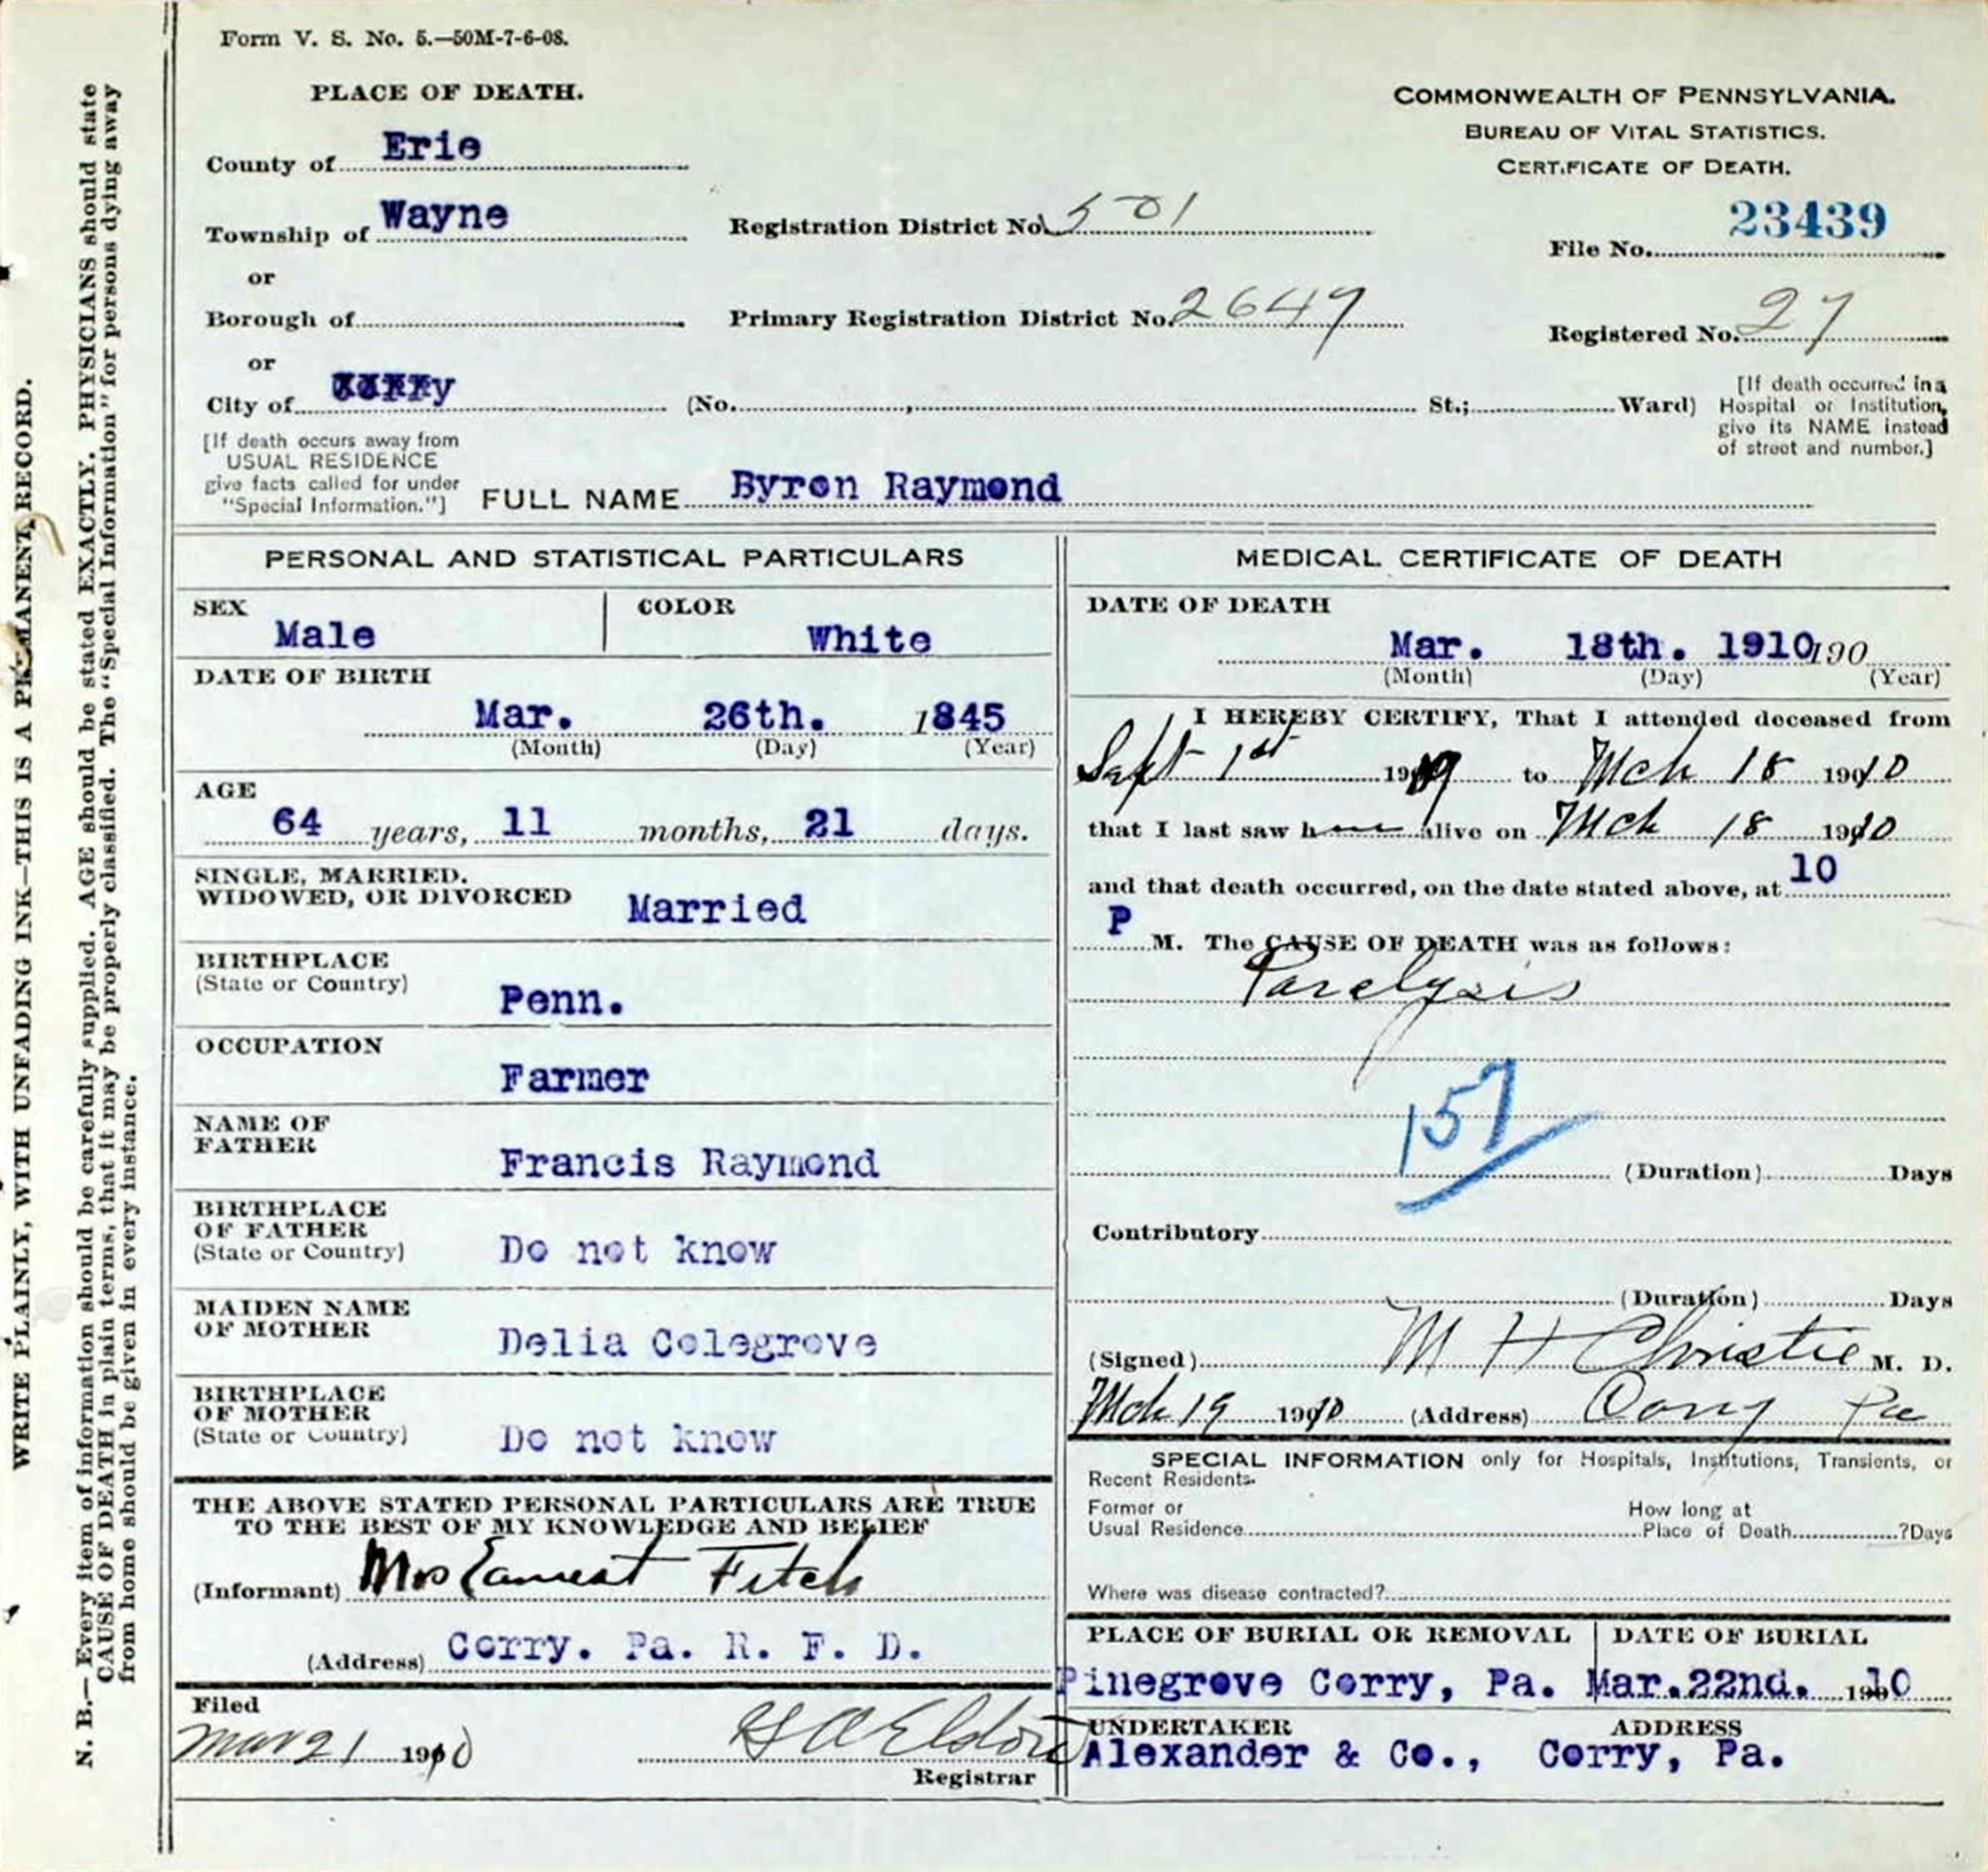 Form V. S. No. 5.—50M-7-6-08.
PLACE OF DEATH.
County of Erie
Township of Wayne
or
Borough of
or
City of
[If death occurs away from
USUAL RESIDENCE
give facts called for under
"Special Information."]
COMMONWEALTH OF PENNSYLVANIA.
BUREAU OF VITAL STATISTICS.
CERTIFICATE OF DEATH.
Registration District No. 501
File No. 23439
Primary Registration District No. 2647
Registered No. 27
(No. , St.; Ward)
[If death occurred in a
Hospital or Institution,
give its NAME instead
of street and number.]
FULL NAME Byron Raymond
PERSONAL AND STATISTICAL PARTICULARS
SEX Male
COLOR White
DATE OF BIRTH
Mar. 26th. 1845
(Month) (Day) (Year)
AGE
64 years, 11 months, 21 days.
SINGLE, MARRIED,
WIDOWED, OR DIVORCED Married
BIRTHPLACE
(State or Country) Penn.
OCCUPATION
Farmer
NAME OF
FATHER
Francis Raymond
BIRTHPLACE
OF FATHER
(State or Country) Do not know
MAIDEN NAME
OF MOTHER Delia Colegrove
BIRTHPLACE
OF MOTHER
(State or Country) Do not know
THE ABOVE STATED PERSONAL PARTICULARS ARE TRUE
TO THE BEST OF MY KNOWLEDGE AND BELIEF
(Informant) Mrs Earnest Fitch
(Address) Corry. Pa. R. F. D.
Filed
Mar 21 1910
Registrar
MEDICAL CERTIFICATE OF DEATH
DATE OF DEATH
Mar. 18th. 1910 190
(Month) (Day) (Year)
I HEREBY CERTIFY, That I attended deceased from
Sept 1st 1909 to Mch 18 1910
that I last saw him alive on Mch 18 1910
and that death occurred, on the date stated above, at 10
P M. The CAUSE OF DEATH was as follows:
Paralysis
157
(Duration) Days
Contributory
(Duration) Days
(Signed) M H Christie M. D.
Mch 19 1910 (Address) Corry Pa
SPECIAL INFORMATION only for Hospitals, Institutions, Transients, or
Recent Residents.
Former or
Usual Residence
How long at
Place of Death ?Days
Where was disease contracted?
PLACE OF BURIAL OR REMOVAL
Pinegrove Corry, Pa.
DATE OF BURIAL
Mar.22nd. 1910
UNDERTAKER
Alexander & Co.,
ADDRESS
Corry, Pa.
WRITE PLAINLY, WITH UNFADING INK—THIS IS A PERMANENT RECORD.
N. B.—Every item of information should be carefully supplied. AGE should be stated EXACTLY. PHYSICIANS should state
CAUSE OF DEATH in plain terms, that it may be properly classified. The "Special Information" for persons dying away
from home should be given in every instance.